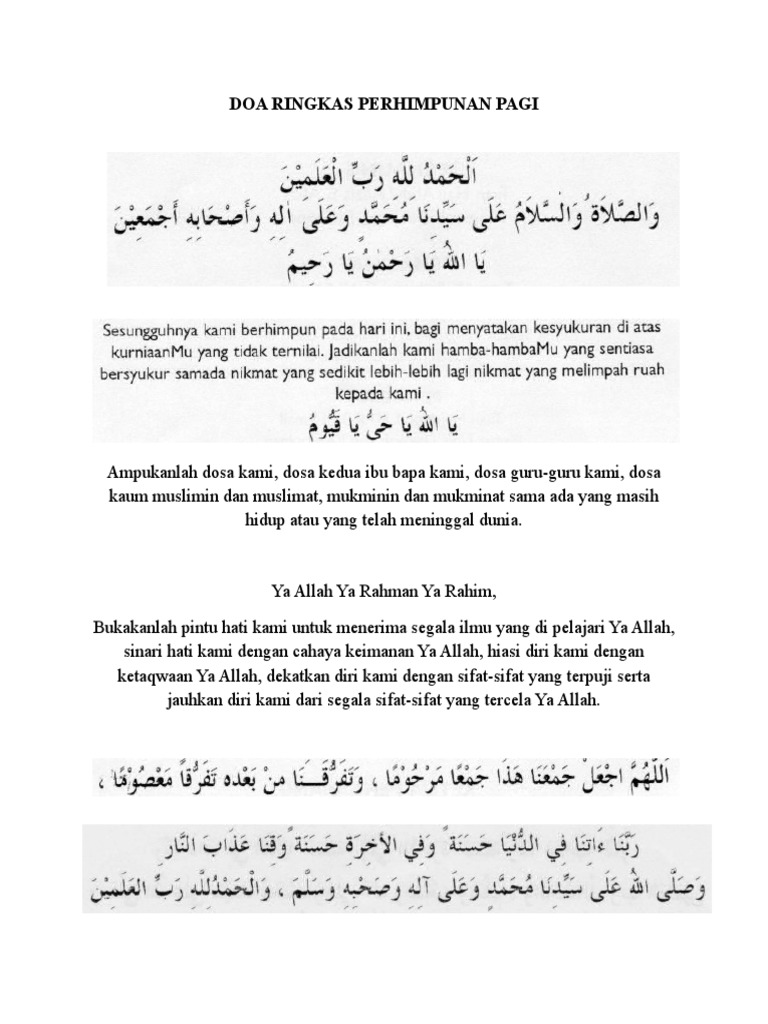 DOA RINGKAS PERHIMPUNAN PAGI
اَلْحَمْدُ لِلَّهِ رَبِّ الْعَلَمِيْنَ
وَالصَّلَاةُ وَالسَّلَامُ عَلَى سَيِّدِنَا مُحَمَّدٍ وَعَلَى اٰلِهِ وَأَصْحَابِهِ أَجْمَعِيْنَ
يَا اللهُ يَا رَحْمٰنُ يَا رَحِيمُ
Sesungguhnya kami berhimpun pada hari ini, bagi menyatakan kesyukuran di atas
kurniaanMu yang tidak ternilai. Jadikanlah kami hamba-hambaMu yang sentiasa
bersyukur samada nikmat yang sedikit lebih-lebih lagi nikmat yang melimpah ruah
kepada kami .
يَا اللهُ يَا حَيُّ يَا قَيُّومُ
Ampukanlah dosa kami, dosa kedua ibu bapa kami, dosa guru-guru kami, dosa
kaum muslimin dan muslimat, mukminin dan mukminat sama ada yang masih
hidup atau yang telah meninggal dunia.
Ya Allah Ya Rahman Ya Rahim,
Bukakanlah pintu hati kami untuk menerima segala ilmu yang di pelajari Ya Allah,
sinari hati kami dengan cahaya keimanan Ya Allah, hiasi diri kami dengan
ketaqwaan Ya Allah, dekatkan diri kami dengan sifat-sifat yang terpuji serta
jauhkan diri kami dari segala sifat-sifat yang tercela Ya Allah.
اَللّٰهُمَّ اجْعَلْ جَمْعَنَا هَذَا جَمْعًا مَرْحُوْمًا ، وَتَفَرُّقَـــنَا مِنْ بَعْدِهِ تَفَرُّقاً مَعْصُوْمًا ،
رَبَّنَا ءَاتِنَا فِي الدُّنْيَا حَسَنَةً وَفِي الأَخِرَةِ حَسَنَةً وَقِنَا عَذَابَ النَّارِ
وَصَلَّى اللهُ عَلَى سَيِّدِنَا مُحَمَّدٍ وَعَلَى آلِهِ وَصَحْبِهِ وَسَلَّمَ ، وَالْحَمْدُلِلَّهِ رَبِّ العَلَمِيْنَ